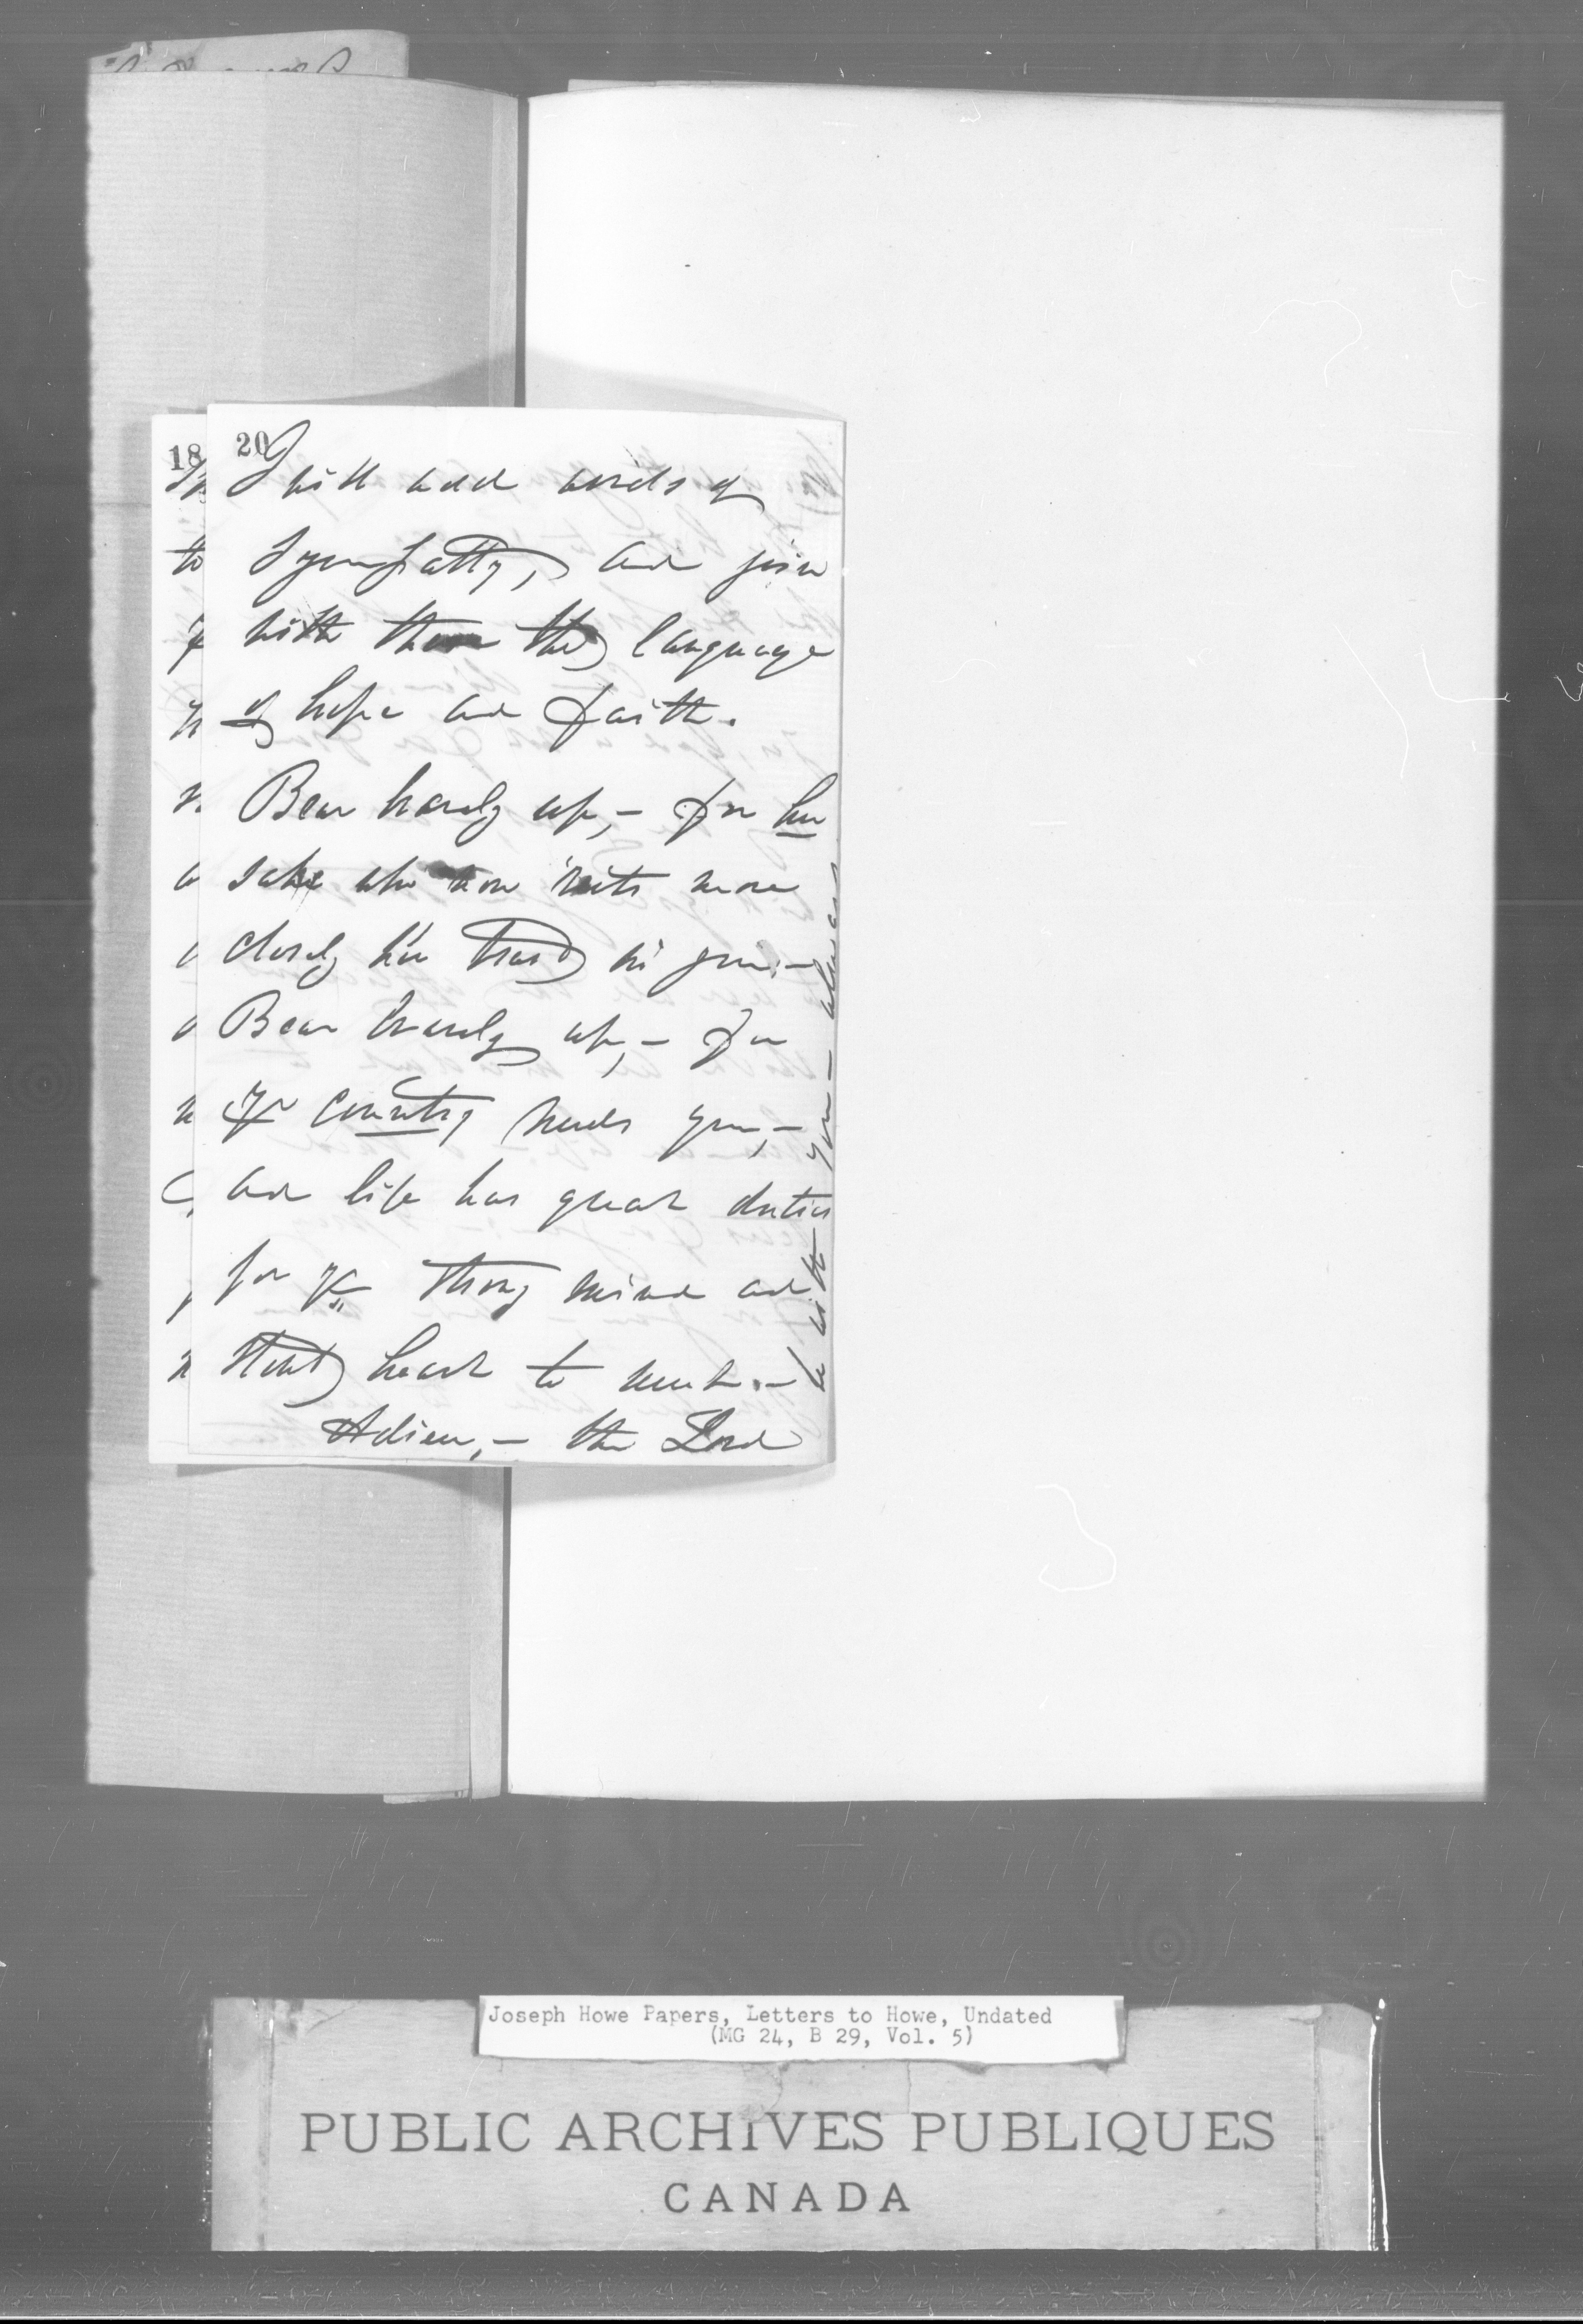 18
20
I will add words of
sympathy, and join
with them the language
of hope and faith.
Bear bravely up, – for her
sake who now knits more
closely her trust in you. –
Bear bravely up, – for
yr country needs you, –
and life has great duties
for yr strong mind and
stout heart to meet. –
Adieu, – the Lord
be with you – always
Joseph Howe Papers, Letters to Howe, Undated
(MG 24, B 29, Vol. 5)
PUBLIC ARCHIVES PUBLIQUES
CANADA